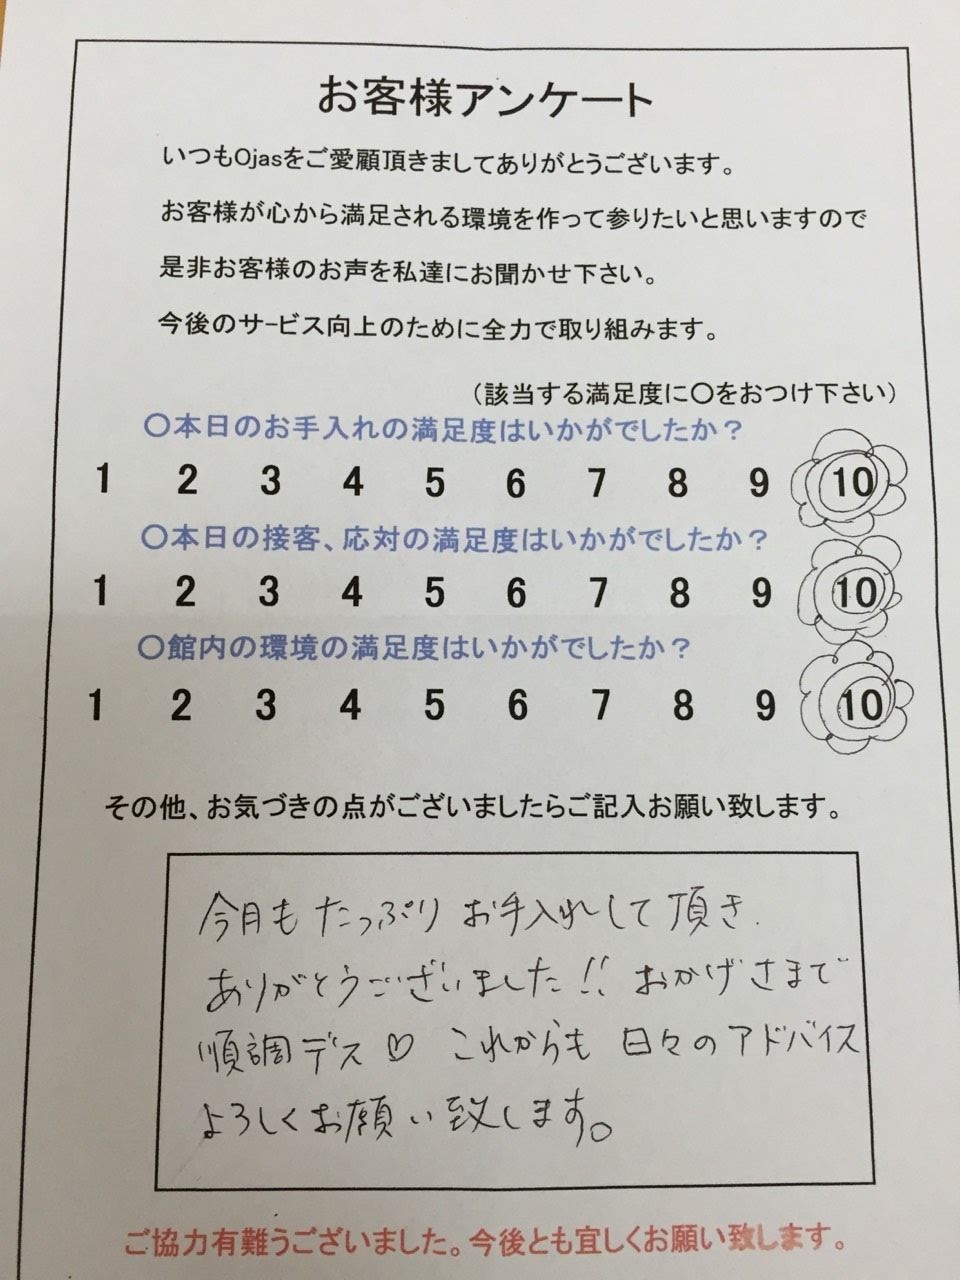 お客様アンケート
いつもOjasをご愛顧頂きましてありがとうございます。
お客様が心から満足される環境を作って参りたいと思いますので
是非お客様のお声を私達にお聞かせ下さい。
今後のサービス向上のために全力で取り組みます。
（該当する満足度に〇をおつけ下さい）
〇本日のお手入れの満足度はいかがでしたか？
1 2 3 4 5 6 7 8 9 10
〇本日の接客、応対の満足度はいかがでしたか？
1 2 3 4 5 6 7 8 9 10
〇館内の環境の満足度はいかがでしたか？
1 2 3 4 5 6 7 8 9 10
その他、お気づきの点がございましたらご記入お願い致します。
今月もたっぷりお手入れして頂き、
ありがとうございました!! おかげさまで
順調デス♡ これからも日々のアドバイス
よろしくお願い致します。
ご協力有難うございました。今後とも宜しくお願い致します。